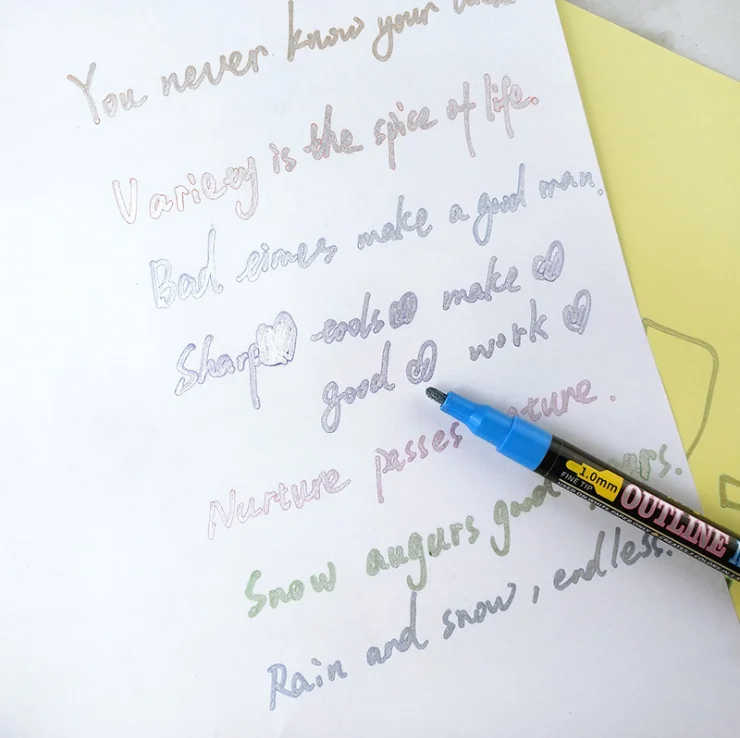 You never know your
Variety is the spice of life.
Bad eimes make a good man.
Sharp tools make
good work
Nurture passes
Snow augurs good
Rain and snow, endless.
1.0mm
FINE TIP
OUTLINE